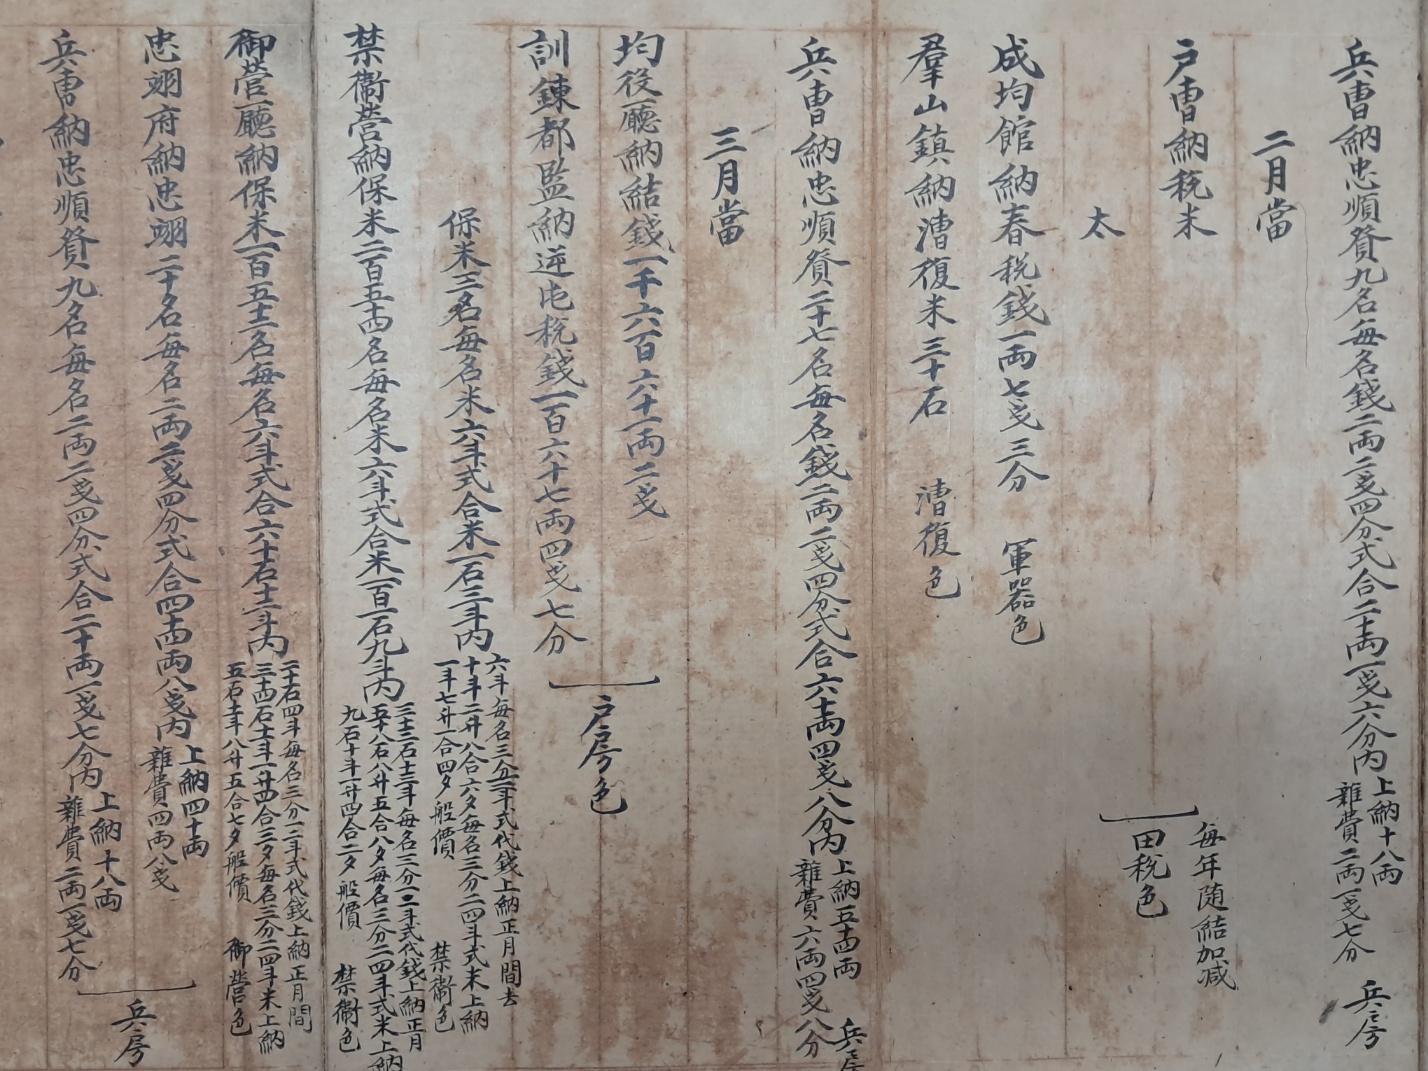 兵曹納忠順贊九名每名錢二兩二戔四分式合二十兩一戔六分內 上納十八兩 雜費二兩一戔七分 兵房
二月當
戶曹納稅米
太
每年隨結加減 田稅色
成均館納春稅錢一兩七戔三分 軍器色
羣山鎭納漕復米三十石 漕復色
兵曹納忠順贊二十七名每名錢二兩二戔四分式合六十兩四戔八分內 上納五十四兩 雜費六兩四戔八分 兵房
三月當
均役廳納結錢一千六百六十一兩二戔
訓鍊都監納逆屯稅錢一百六十七兩四戔七分
戶房色
保米三名每名米六斗式合米一石三斗內 六斗每名三分一二斗式代錢上納正月間去 十斗二升八合六夕每名三分二四斗式米上納 一斗七升一合四夕船價 禁衛色
禁衛營納保米二百五十四名每名米六斗式合米一百一石九斗內 三十三石十三斗每名三分一二斗式代錢上納正月 五十八石八升五合八夕每名三分二四斗式米上納 九石十斗一升四合二夕船價 禁衛色
御營廳納保米一百五十二名每名六斗式合六十石十二斗內 二十石四斗每名三分一二斗式代錢上納正月間 三十四石十斗一升四合三夕每名三分二四斗米上納 五石十二斗八升五合七夕船價 御營色
忠翊府納忠翊二十名每名二兩二戔四分式合四十四兩八戔內 上納四十兩 雜費四兩八戔
兵曹納忠順贊九名每名二兩二戔四分式合二十兩一戔七分內 上納十八兩 雜費二兩一戔七分
兵房